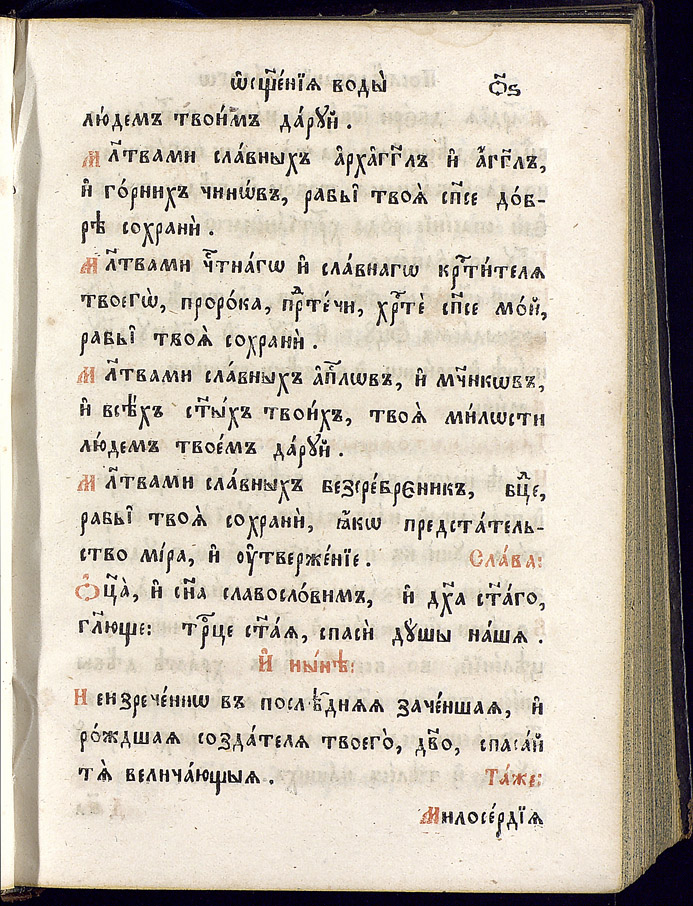 ѡ҆сщ҃е́нїѧ воды̀ ѻ҃ѕ
лю́демъ твои̑мъ да́рꙋй .
Мл҃твами сла́вныхъ а҆рха́гг҃лъ и҆ а҆́гг҃лъ,
и҆ го́рнихъ чинѡ́въ, рабы̑ твоѧ̀ сп҃се до́б-
рѣ сохранѝ .
Мл҃твами чⷭ҇тна́гѡ и҆ сла́внагѡ крⷭ҇ти́телѧ
твоегѡ̀, проро́ка, прⷣте́чи, хрⷭ҇тѐ сп҃се мо́й,
рабы̑ твоѧ̀ сохранѝ .
Мл҃твами сла́вныхъ а҆пⷭ҇лѡвъ, и҆ мч҃нкѡвъ,
и҆ всѣ́хъ ст҃ы́хъ твои́хъ, твоѧ̀ ми́лѡсти
лю́демъ твое́мъ да́рꙋй .
Мл҃твами сла́вныхъ безсре́бреникъ, бцⷣе,
рабы̑ твоѧ̀ сохранѝ, ꙗ҆́кѡ предста́тель-
ство мі́ра, и҆ ᲂу҆твержє́нїе . Сла́ва:
Ѻ҆ц҃а̀, и҆ сн҃а славосло́вимъ, и҆ дх҃а ст҃а́го,
гл҃юще: трⷪ҇це ст҃а́ѧ, спасѝ дꙋ́шы нашѧ .
И҆ ны́нѣ:
Неизрече́ннѡ въ послѣ́днѧѧ заче́ншаѧ, и҆
ро́ждшаѧ созда́телѧ твоего̀, дв҃о, спаса́й
тѧ̀ велича́ющыѧ . Та́же:
Милосе́рдїѧ